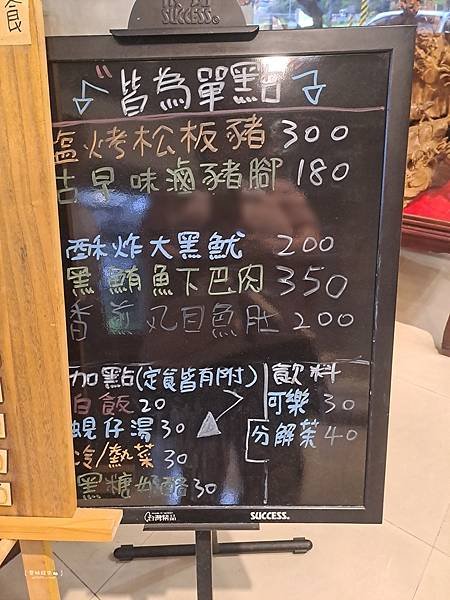 食
成功
SUCCESS®
"皆為單點"
塩烤松板豬 300
古早味滷豬腳 180
酥炸大黑魷 200
黑鮪魚下巴肉 350
香煎虱目魚肚 200
加點(定食皆有附)
白飯 20
蜆仔湯 30
冷/熱菜 30
黑糖奶酪 30
飲料
可樂 30
分解茶 40
台灣精品
SUCCESS®